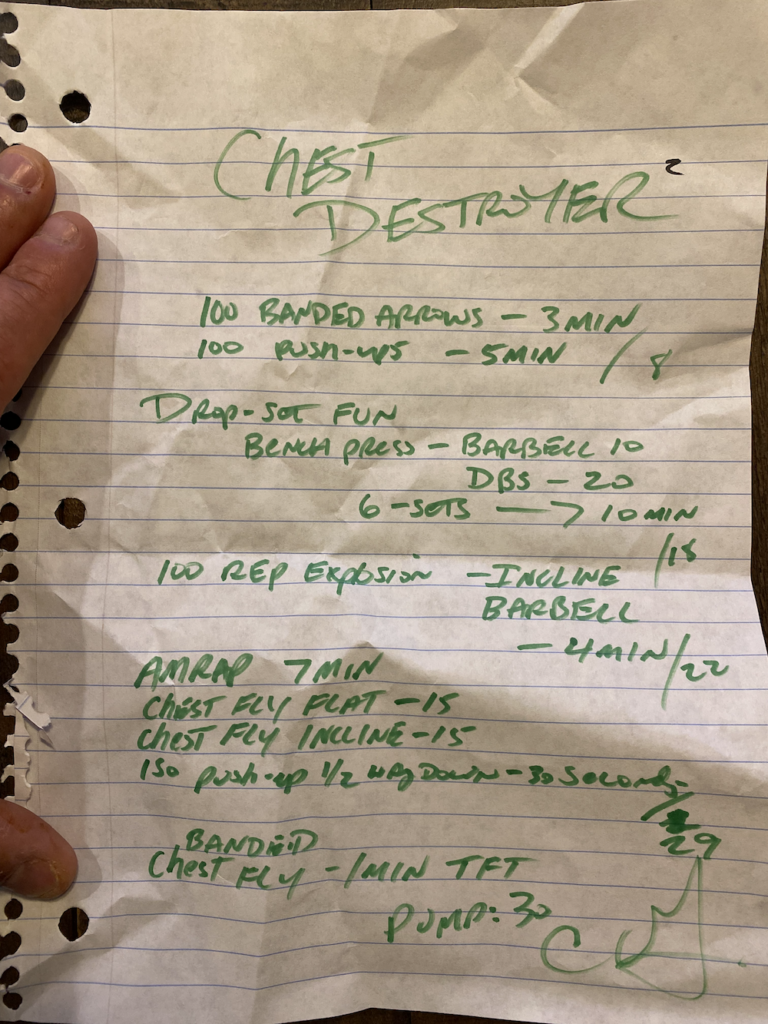 CHEST
DESTROYER 2
100 BANDED ARROWS - 3 MIN
100 PUSH-UPS - 5 MIN / 8
DROP-SET FUN
BENCH PRESS - BARBELL 10
DBS - 20
6-SETS → 10 MIN
/18
100 REP EXPLOSION - INCLINE
BARBELL
- 4 MIN /22
AMRAP 7 MIN
CHEST FLY FLAT - 15
CHEST FLY INCLINE - 15
ISO PUSH-UP 1/2 WAY DOWN - 30 SECONDS
/
29
BANDED
CHEST FLY - 1 MIN TFT
PUMP: 30